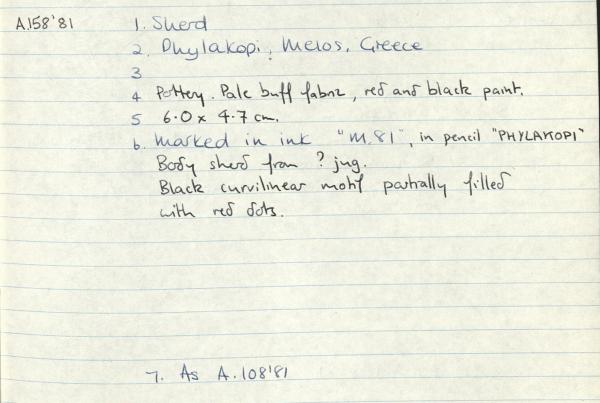 A.158'81
1. Sherd
2. Phylakopi, Melos, Greece
3
4 Pottery. Pale buff fabric, red and black paint.
5 6.0 x 4.7 cm.
6. Marked in ink "M.81", in pencil "PHYLAKOPI"
Body sherd from ? jug.
Black curvilinear motif partially filled
with red dots.
7. As A.108'81